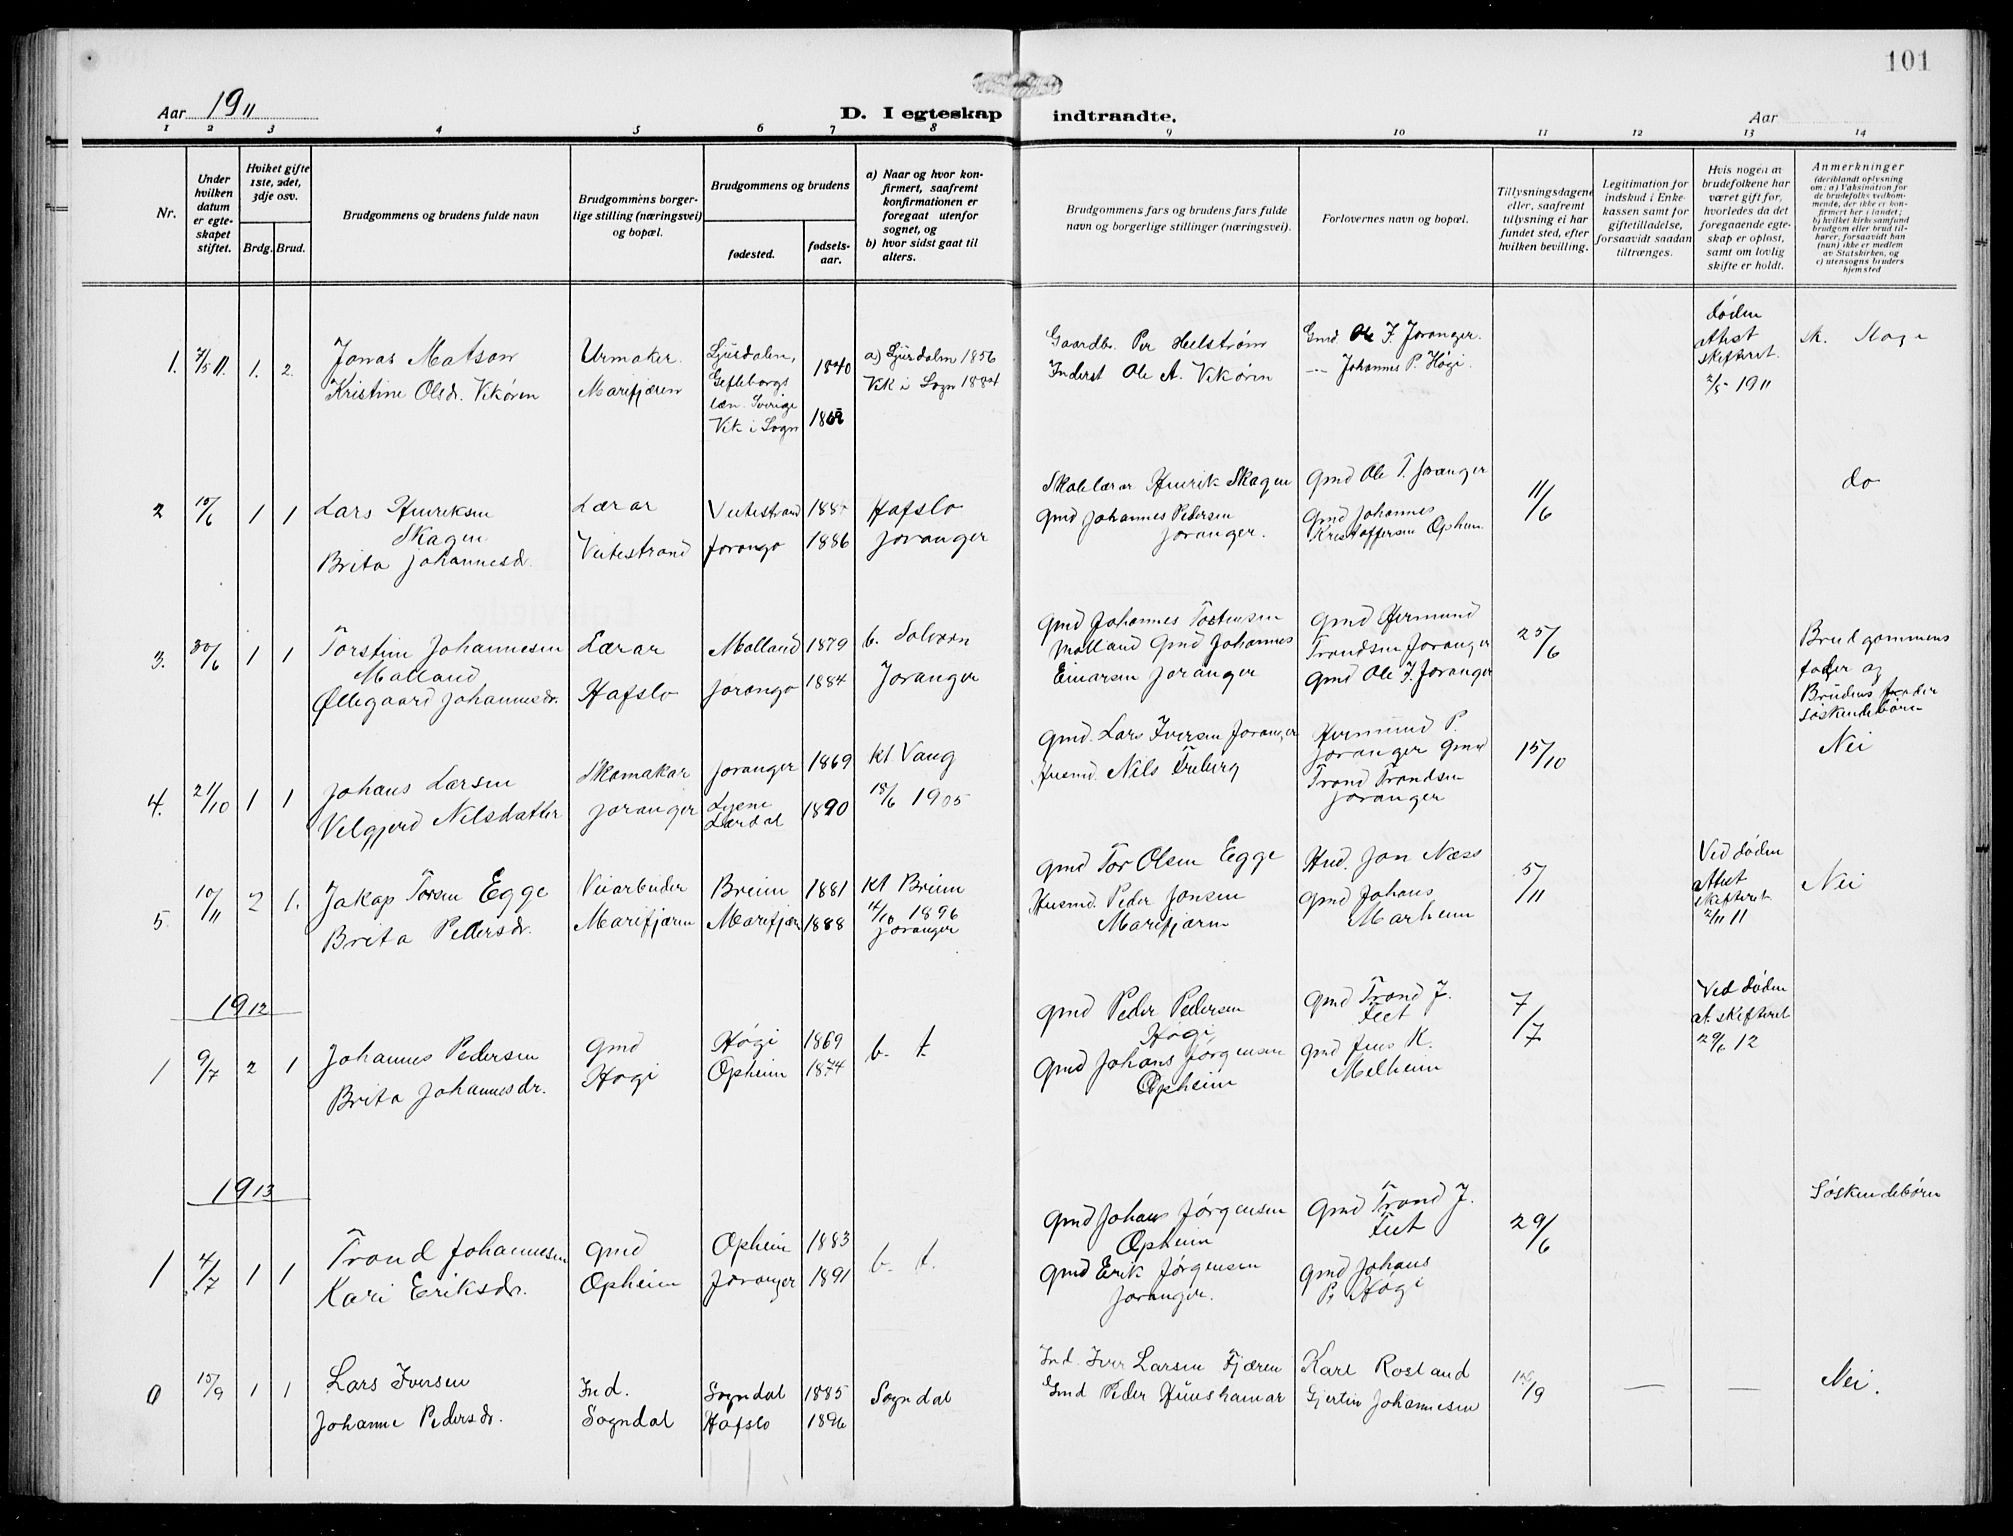 101
Aar 1911
D. I egteskap indtraadte.
Aar
1 2 3 4 5 6 7 8 9 10 11 12 13 14
Nr.
Under hvilken datum er egteskapet stiftet.
Hviket gifte 1ste, 2det, 3dje osv.
Brdg. Brud.
Brudgommens og brudens fulde navn
Brudgommens borgerlige stilling (næringsvei) og bopæl.
Brudgommens og brudens
fødested.
fødselsaar.
a) Naar og hvor konfirmert, saafremt konfirmationen er foregaat utenfor sognet, og
b) hvor sidst gaat til alters.
Brudgommens fars og brudens fars fulde navn og borgerlige stillinger (næringsvei).
Forlovernes navn og bopæl.
Tillysningsdagene eller, saafremt tillysning ei har fundet sted, efter hvilken bevilling.
Legitimation for indskud i Enkekassen samt for giftetilladelse, forsaavidt saadan tiltrænges.
Hvis nogen av brudefolkene har været gift før, hvorledes da det foregaaende egteskap er opløst, samt om lovlig skifte er holdt.
Anmerkninger
(deriblandt oplysning om: a) Vaksination for de brudefolks vedkommende, der ikke er konfirmert her i landet; b) hvilket kirkesamfund brudgom eller brud tilhører, forsaavidt han (hun) ikke er medlem av Statskirken, og c) utensogns bruders hjemsted
1. 7/5 11. 1. 2.
Jonas Matson
Kristine Olsdr. Vikören
Urmaker.
Marifjæren
Ljusdalen,
Gefleborgs
län. Sverige
Vik i Sogn
1840
a) Ljusdalm 1856
Vik i Sogn 1884
Gaardbr. Per Helström
Inderst Ole A. Vikören
Gmd. Ole J. Joranger.
-- Johannes P. Høgi.
døden
Attest
skifteret.
2/5 1911
2 15/6 1 1
Lars Henriksen
Skagen
Brita Johannesdr.
Lærar
Veitestrand
Veitestrand
Jorange
1886
Hafslo
Joranger
Skolelærar Henrik Skagen
Gmd Johannes Pedersen
Joranger.
Gmd Ole T. Joranger
Gmd Johannes
Kristoffersen Opheim
11/6
do
3. 30/6 1 1
Torstein Johannesen
Molland
Øllegaard Johannesdr.
Lærar
Hafslo
Molland
Jorange
1879
1884
b. Solvorn
Joranger
Gmd Johannes Tostensen
Molland Gmd Johannes
Einarsen Joranger
Gmd Hermund
Trondsen Joranger
Gmd Ole J. Joranger
25/6
Brudgommens
fader og
Brudens fader
søskendebörn
4. 21/10 1 1
Johans Larsen
Velgjerd Nilsdatter
Skomakar
Joranger
Joranger
Lysne
Lærdal
1869
1890
kt Vang
18/6 1905
Gmd. Lars Iversen Joranger
Husmd. Nils Freberg
Hermund P.
Joranger Gmd
Trond Trondsen
Joranger
15/10
Nei
5. 10/11 2 1.
Jakop Torsen Egge
Brita Pedersdr.
Veiarbeider
Marifjæren
Breim
Marifjæren
1881
1888
kt Breim
4/10 1896
Joranger
Gmd Tor Olsen Egge
Husmd. Peder Jonsen
Marifjæren
Hud. Jon Næss
Gmd Johans
Marheim
5/11
Ved døden
Attest
skifteret
2/11 11
Nei
1912
1 9/7 2 1
Johannes Pedersen
Brita Johannesdr.
Gmd
Høgi
Høgi
Opheim
1869
1874
b. t.
Gmd Peder Pedersen
Høgi
Gmd Johans Jørgensen
Opheim
Gmd Trond J.
Feet
Gmd Jens K.
Melheim
7/7
Ved døden
at. skifteret
29/6 12
1913
1 4/7 1 1
Trond Johannesen
Kari Eriksdr.
Gmd
Opheim
Opheim
Joranger
1883
1891
b. t.
Gmd Johans Jørgensen
Opheim
Gmd Erik Jørgensen
Joranger.
Gmd Trond J.
Feet
Gmd Johans
P. Høgi
29/6
Søskendebörn
0 15/9 1 1
Lars Iversen
Johanne Pedersdr.
Ind.
Sogndal
Sogndal
Hafslo
1885
1896
Sogndal
Ind. Iver Larsen Fjæren
Gmd Peder Huushamar
Karl Rosland
Gjertin Johannesen
15/9
— —
Nei.